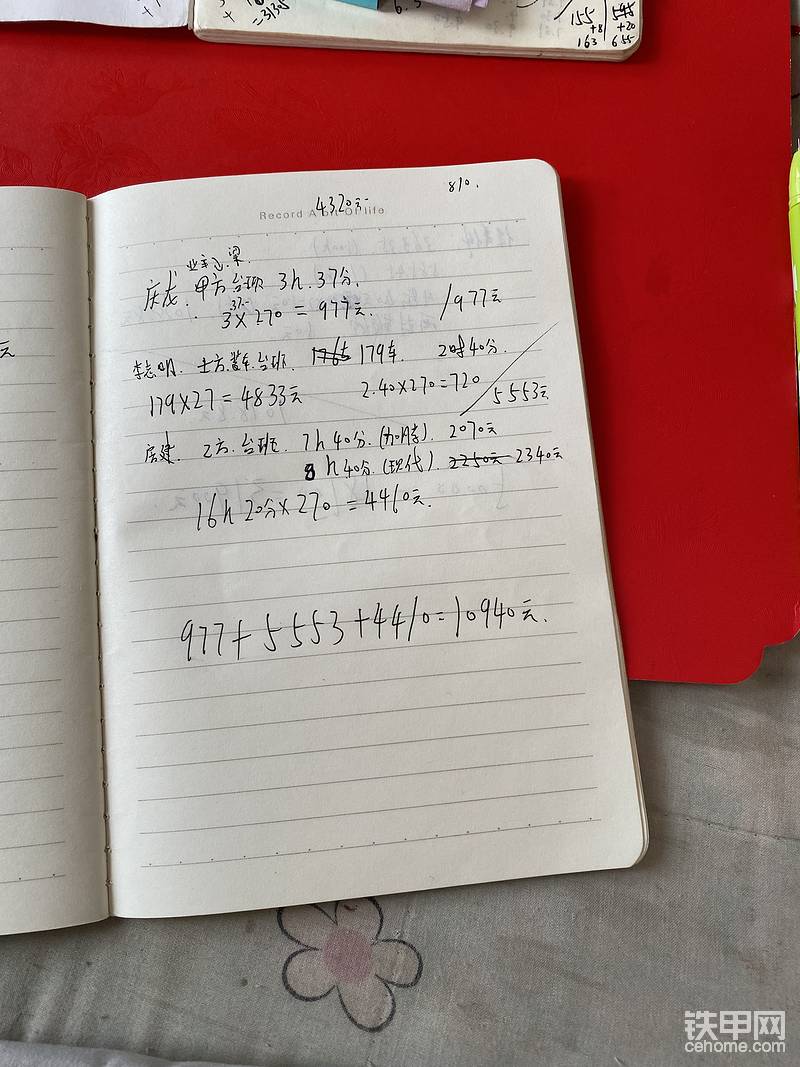 =3135
6.3
155
+8
163
545
+20
655
810.
4320元
Record A bit Of life
庆龙. 甲方台班 3h.37分.
37
3×270=977元.
1977元
李志明. 土方.装车.台班. 179车. 2时40分.
179×27=4833元
2.40×270=720
5553元
房建. 乙方.台班. 7h40分. 2070元
8h40分.(现代). 2250元 2340元
16h20分×270=4410元.
977+5553+4410=10940元.
元
铁甲网
cehome.com